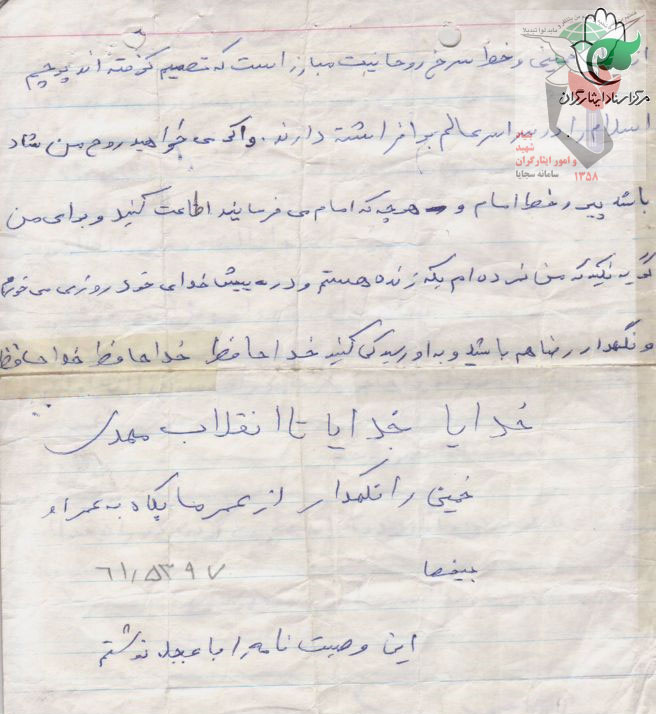 مرکز اسناد ایثارگران
بنیاد شهید و امور ایثارگران
سامانه سجایا
۱۳۵۸
خمینی و خط سرخ روحانیت مبارز است که تصمیم گرفته اند پرچم
اسلام را در سراسر عالم برافراشته دارند. و اگر می خواهید روح من شاد
باشد پیرو خط امام و هرچه که امام می فرمایند اطاعت کنید و برای من
گریه نکنید که من نمرده ام بلکه زنده هستم و در پیش خدای خود روزی می خورم
و نگهدار رضا هم باشید و به او رسیدگی کنید خداحافظ خداحافظ خداحافظ
خدایا خدایا تا انقلاب مهدی
خمینی را نگهدار از عمر ما بکاه به عمر او
بیفزا
این وصیت نامه را با عجله نوشتم